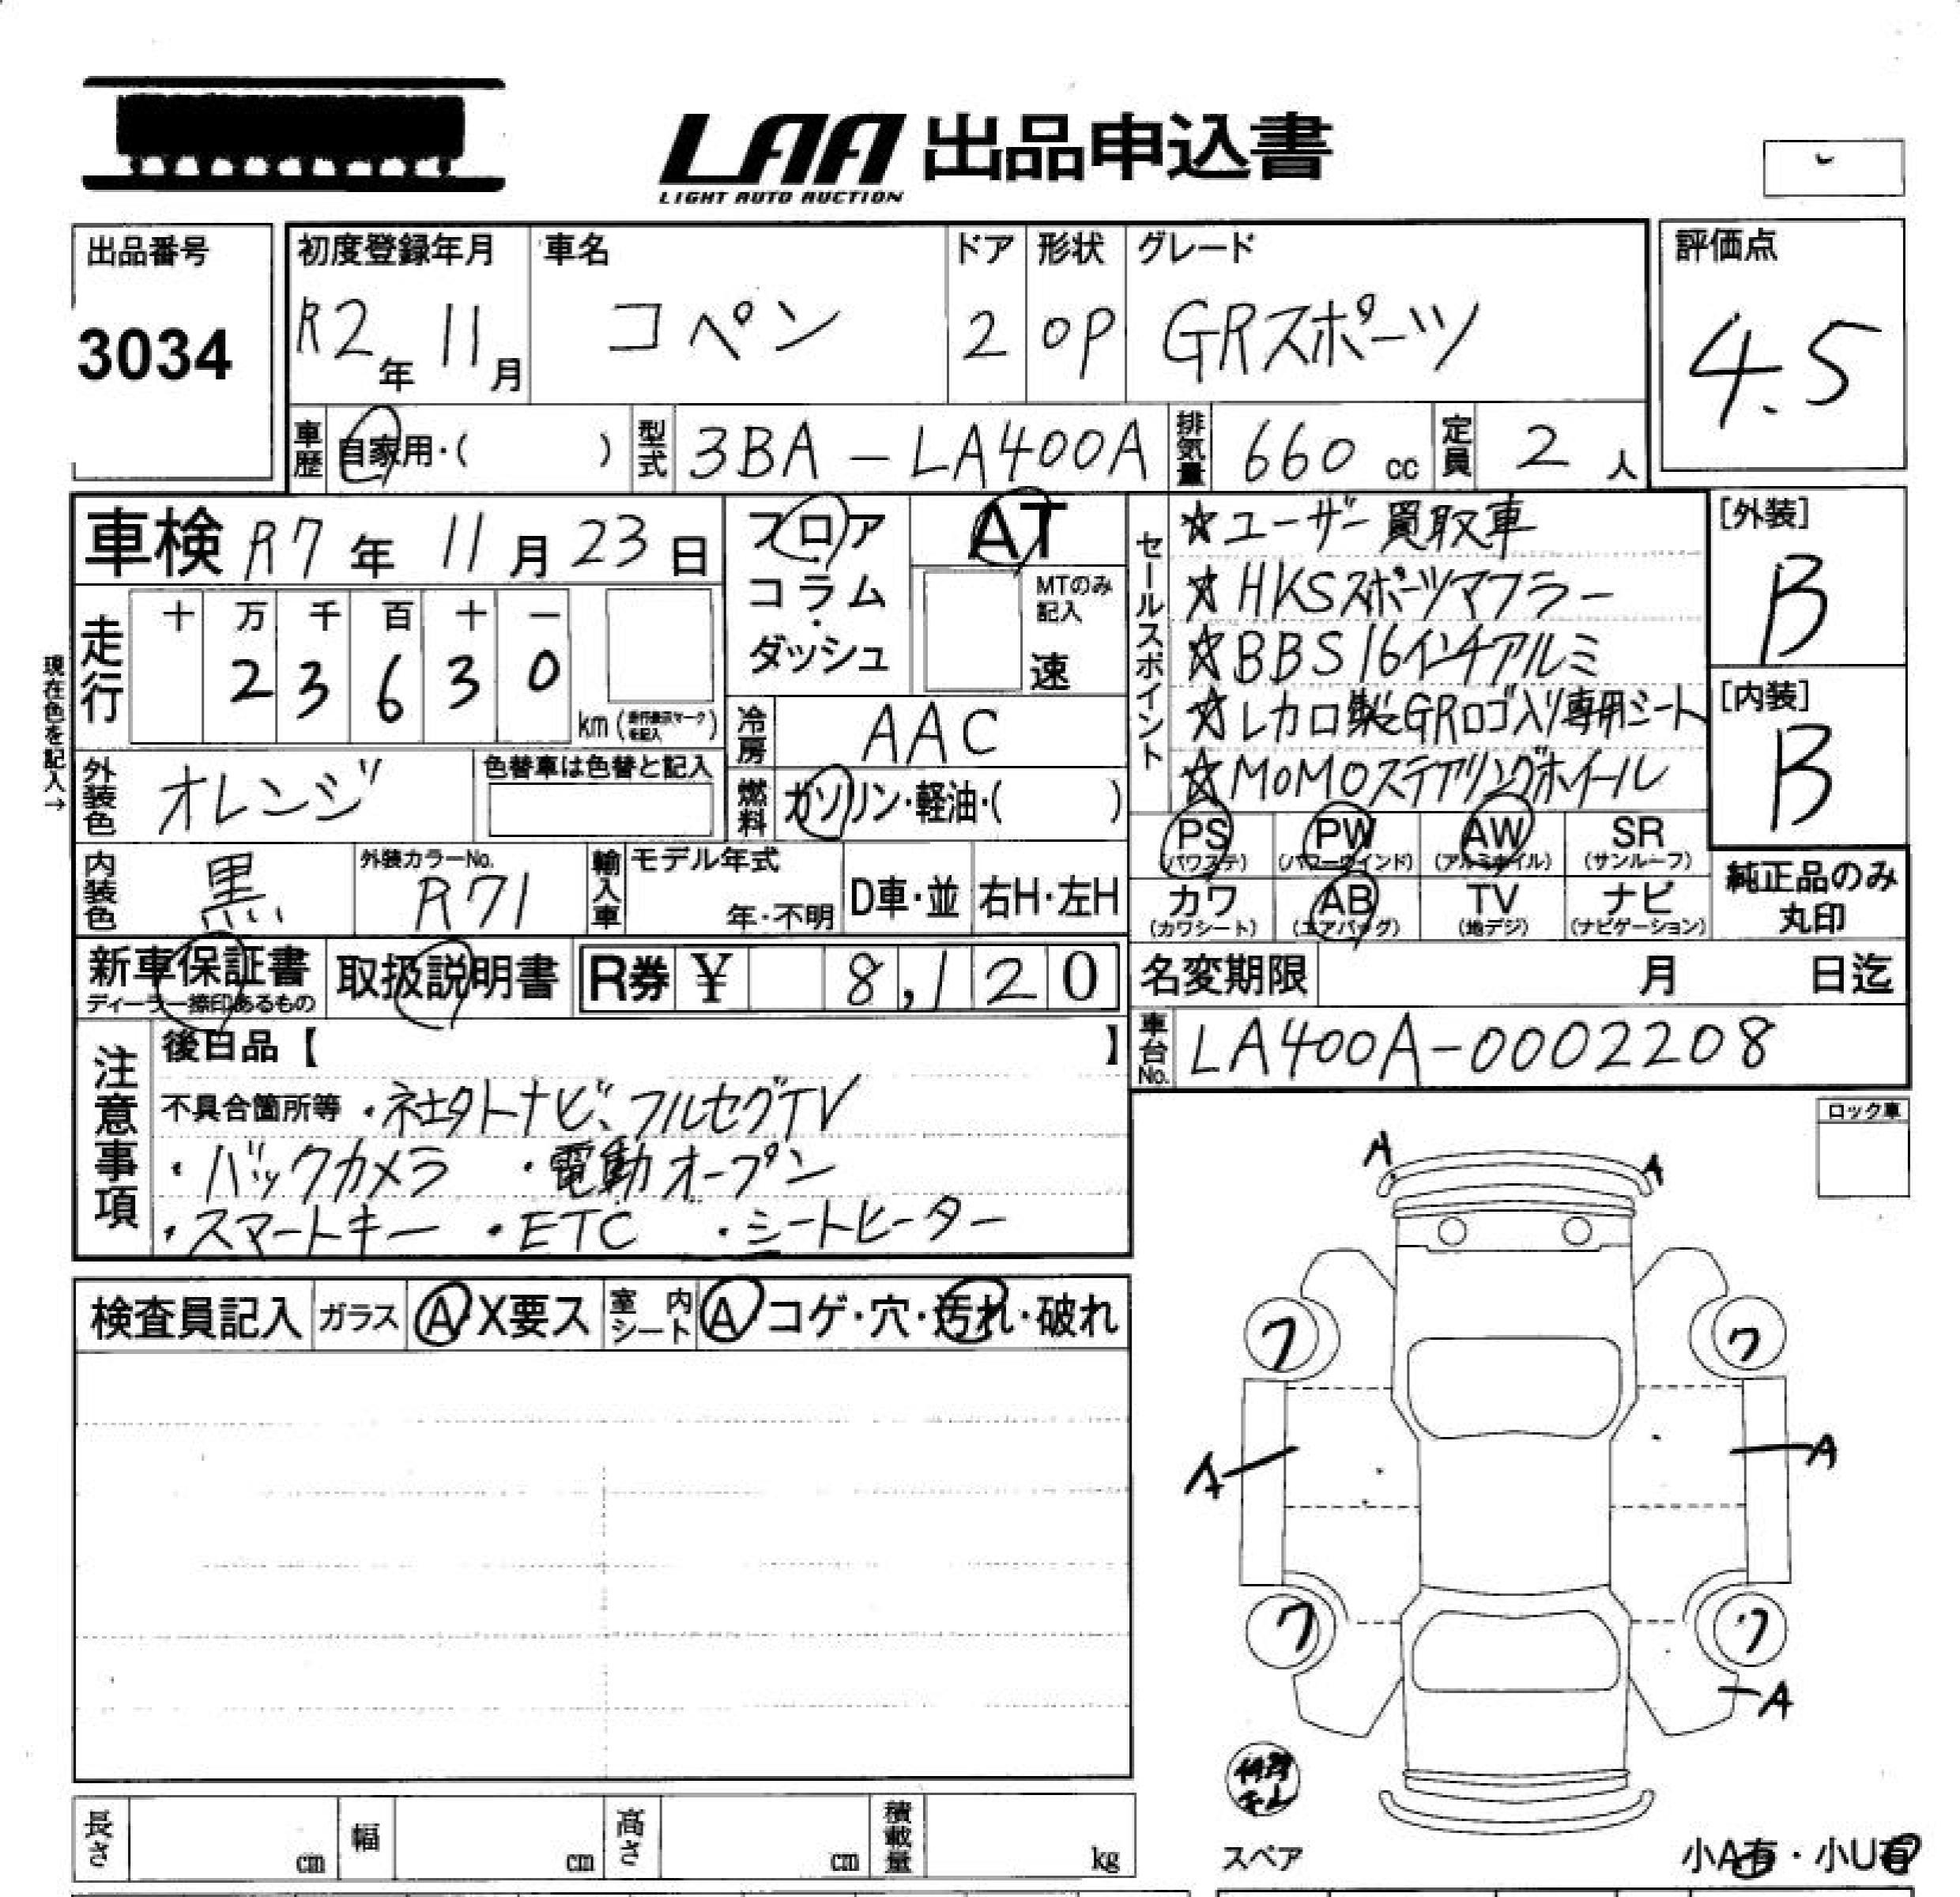 LAA 出品申込書
LIGHT AUTO AUCTION
出品番号
3034
初度登録年月
R2年 11月
車名
コペン
ドア
2
形状
OP
グレード
GRスポーツ
評価点
4.5
車歴 自家用・( )
型式 3BA-LA400A
排気量 660 cc
定員 2 人
車検 R7年 11月 23日
フロア・コラム・ダッシュ
AT
MTのみ記入
速
セールスポイント
☆ユーザー買取車
☆HKSスポーツマフラー
☆BBS16インチアルミ
☆レカロ製GRロゴ入り専用シート
☆MOMOステアリングホイール
[外装]
B
[内装]
B
現在色を記入→
走行
十 万 千 百 十 一
2 3 6 3 0
km
冷房 AAC
燃料 ガソリン・軽油・( )
外装色 オレンジ
色替車は色替と記入
内装色 黒
外装カラーNo.
R71
輸入車
モデル年式
年・不明
D車・並
右H・左H
PS (パワステ)
PW (パワーウインド)
AW (アルミホイル)
SR (サンルーフ)
カワ (カワシート)
AB (エアバッグ)
TV (地デジ)
ナビ (ナビゲーション)
純正品のみ丸印
新車保証書
ディーラー捺印あるもの
取扱説明書
R券 ¥ 8,120
名変期限 月 日迄
車台No. LA400A-0002208
注意事項
後日品【 】
不具合箇所等 ・社外ナビ、フルセグTV
・バックカメラ ・電動オープン
・スマートキー ・ETC ・シートヒーター
ロック車
A A
検査員記入 ガラス A・X要ス 室内シート A コゲ・穴・汚れ・破れ
ワ ワ
A A
ワ ワ
A
スペア
小A有・小U有
長さ cm 幅 cm 高さ cm 積載量 kg